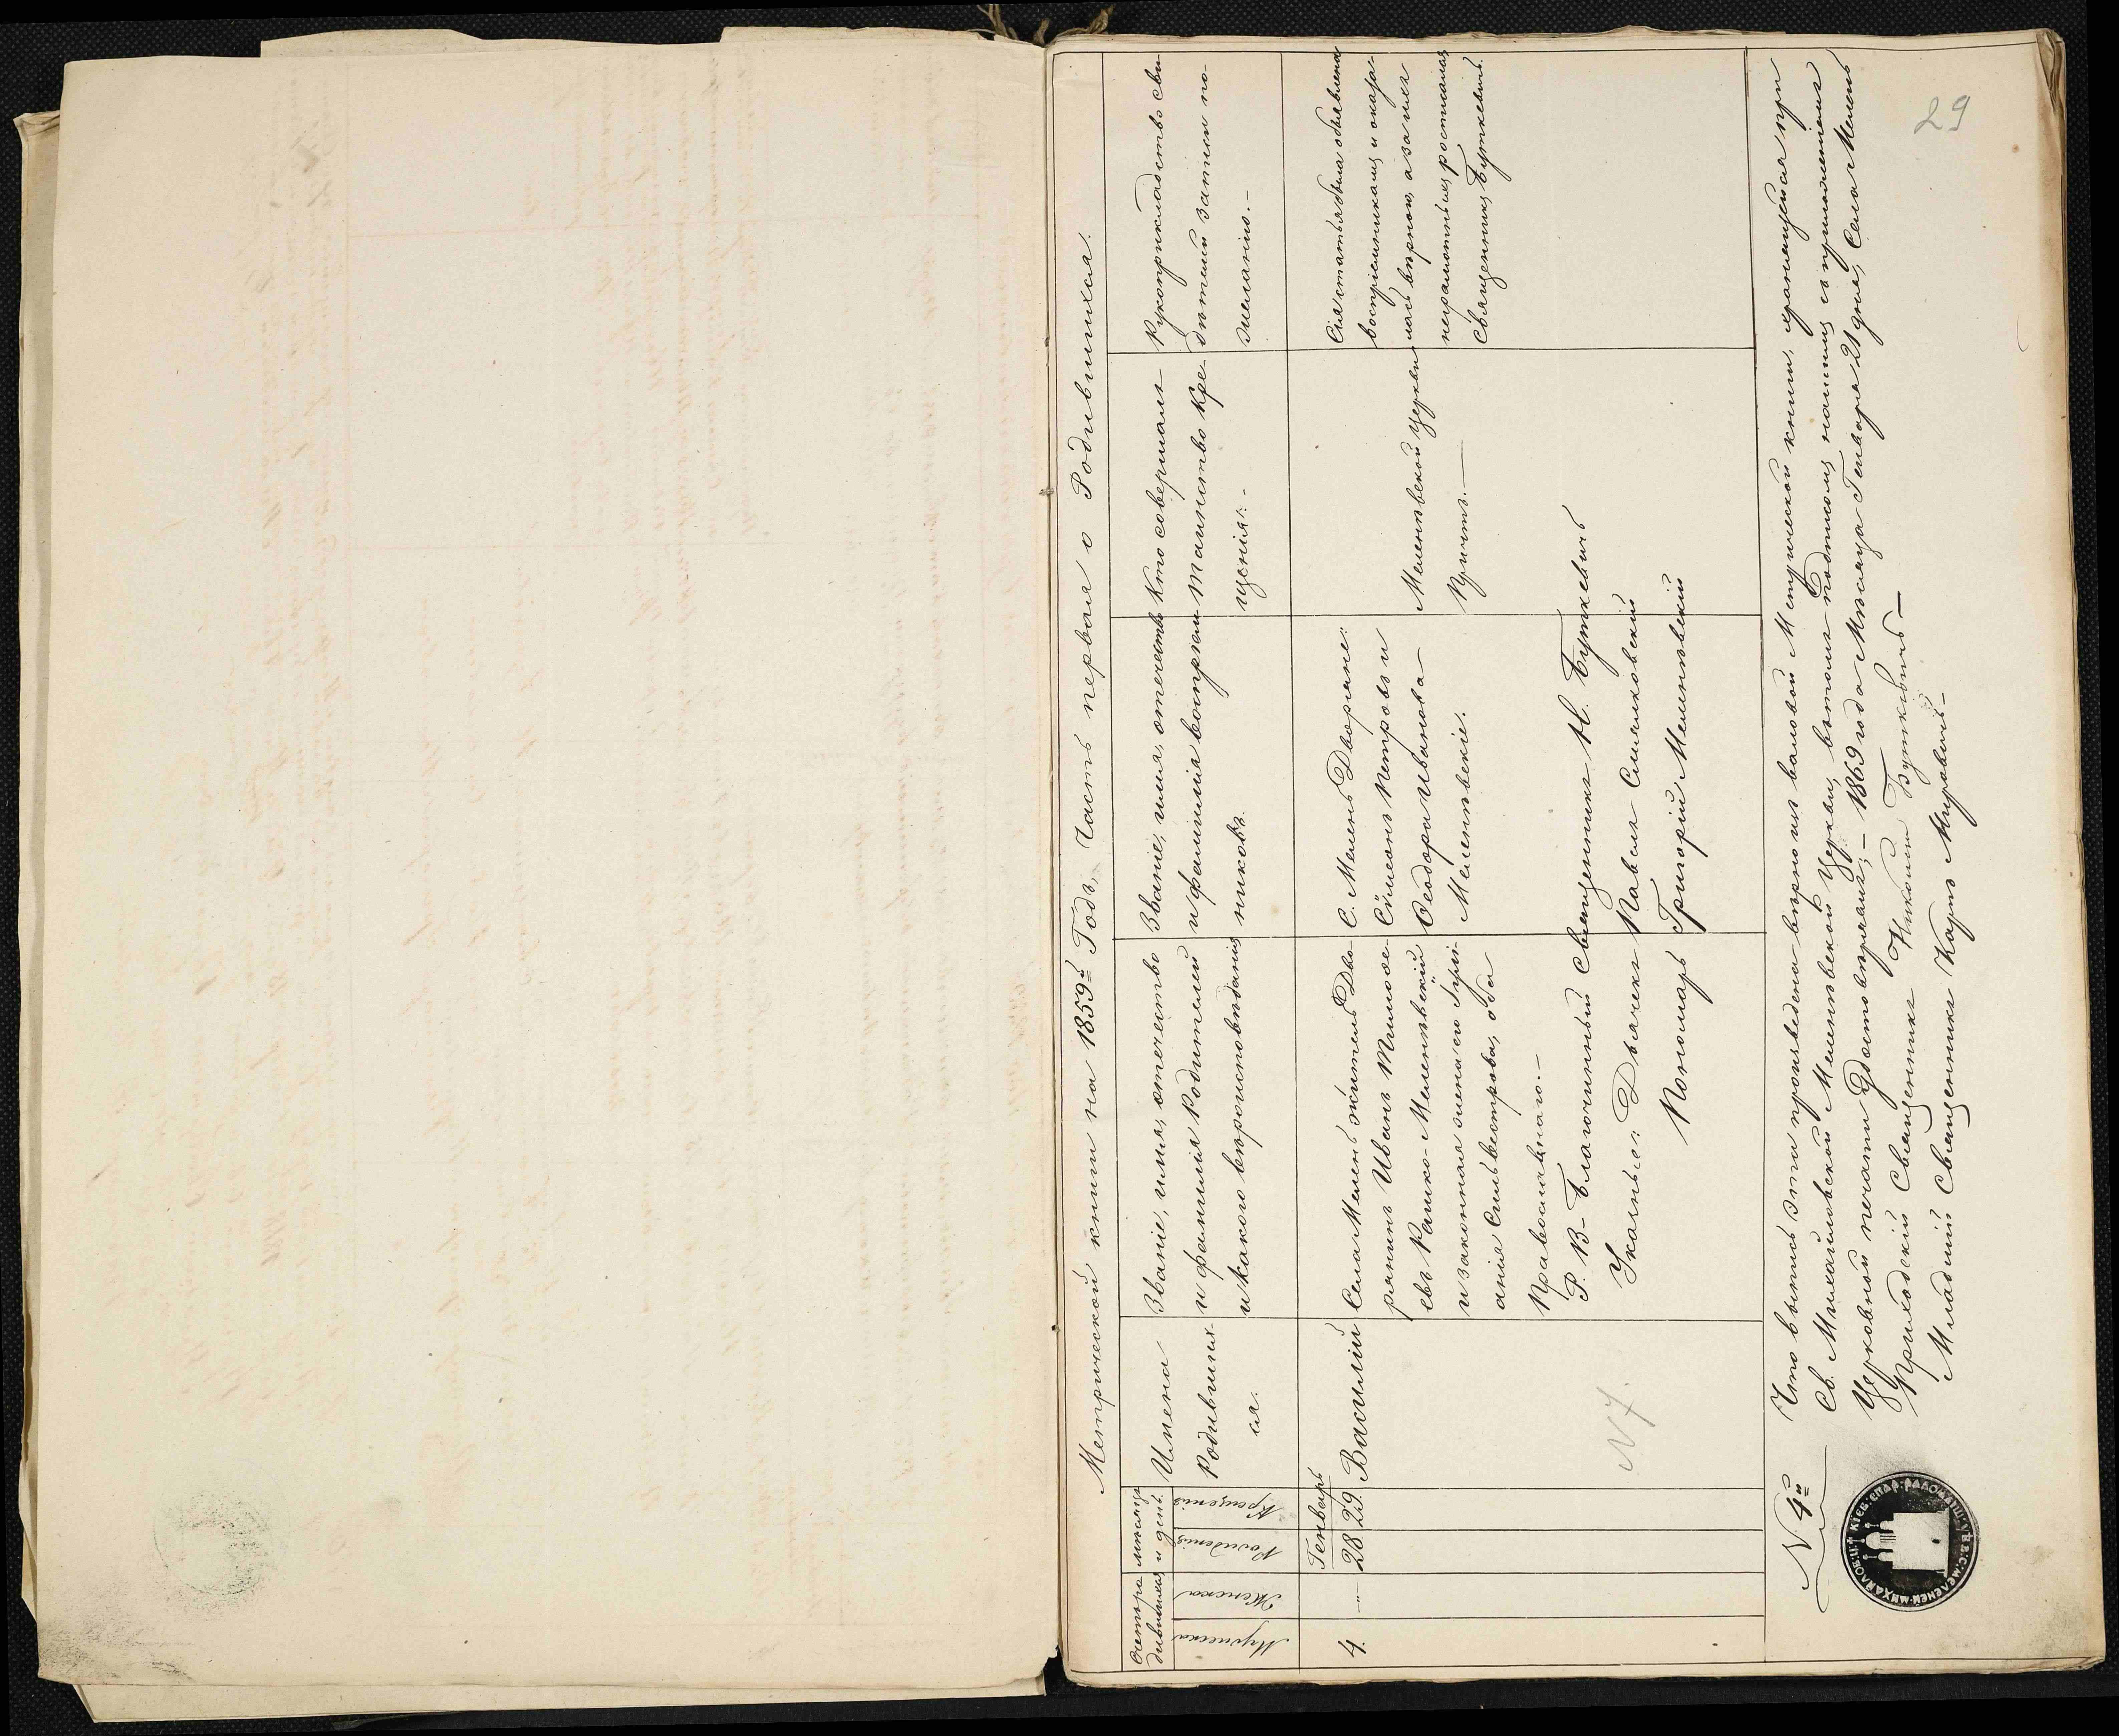 29
Метрической книги на 1859й Годъ, Часть первая о Родившихся.
Счетъ ро-
дившихся
Мужеска
Женска
мѣсяцъ
и день.
Рожденія
Крещенія
Имена
Родивших-
ся.
Званіе, имя, отечество
и фамилія Родителей
и какого вѣроисповѣданія
Званіе, имя, отечество
и фамилія воспріем-
никовъ.
Кто совершалъ
таинство кре-
щенія:-
Рукоприкладство сви-
дѣтелей записи по-
желанію.-
Генварь
4.
-"-
28
29.
Василій
Села Мелень житель Дво-
рянинъ Иванъ Тимофе-
евъ Рашко-Меленѣвскій
и законная жена его Гури-
анія Сильвестрова, оба
Православнаго.-
С. Мелень Дворяне:
Сімеонъ Петровъ и
Ѳеодора Иванова-
Меленѣвскіе.
Меленѣвской церкви
Причтъ.-
Сія статья была объявлена
воспріемникамъ и оказа-
лась вѣрною, а за нихъ
неграмотныхъ росписался
Священникъ Буткевичъ.
Р. В- Благочинный Священникъ Н. Буткевичъ
У кальнеи: Дьячекъ Павелъ Смишковскій
Пономарь Григорій Меленѣвскій
N 7.
N 4й
Что выпись эта произведена вѣрно изъ валовой Метрической книги, хранящейся при
Св. Михайловской Меленѣвской Церкви, въ томъ подписомъ нашимъ съ приложеніемъ
Церковной печати Удостовѣряемъ,- 1869 года Мѣсяца Генваря 21 дня, Села Мелень
Приходскій Священникъ Николай Буткевичъ-
Младшій Священникъ Карпъ Мировичъ-
КІЕВ. ЕПАР. РАДОМЫШ. УѢ. С. МЕЛЕНЕЙ МИХАЙЛОВ. Ц.